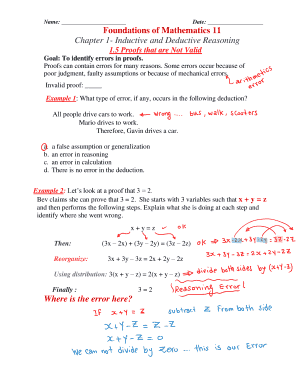 Name: ________ Date: ________
Foundations of Mathematics 11
Chapter 1- Inductive and Deductive Reasoning
1.5 Proofs that are Not Valid
Goal: To identify errors in proofs.
Proofs can contain errors for many reasons. Some errors occur because of
poor judgment, faulty assumptions or because of mechanical errors.
arithmetics
error
Invalid proof: _____
Example 1: What type of error, if any, occurs in the following deduction?
All people drive cars to work. ← wrong .... bus, walk, scooters
Mario drives to work.
Therefore, Gavin drives a car.
a. a false assumption or generalization
b. an error in reasoning
c. an error in calculation
d. There is no error in the deduction.
Example 2: Let's look at a proof that 3 = 2.
Bev claims she can prove that 3 = 2. She starts with 3 variables such that x + y = z
and then performs the following steps. Explain what she is doing at each step and
identify where she went wrong.
x + y = z ok
Then: (3x – 2x) + (3y – 2y) = (3z – 2z) ok ⇒ 3x-2x+3y-2y=3z-2z
Reorganize: 3x + 3y – 3z = 2x + 2y – 2z 3x+3y-3z=2x+2y-2z
Using distribution: 3(x + y – z) = 2(x + y – z) ⇒ divide both sides by (x+y-z)
Finally : 3 = 2 Reasoning Error
Where is the error here?
If x+y = z subtract z from both side
x+y-z = z-z
x+y-z = 0
We can not divide by zero ... this is our Error